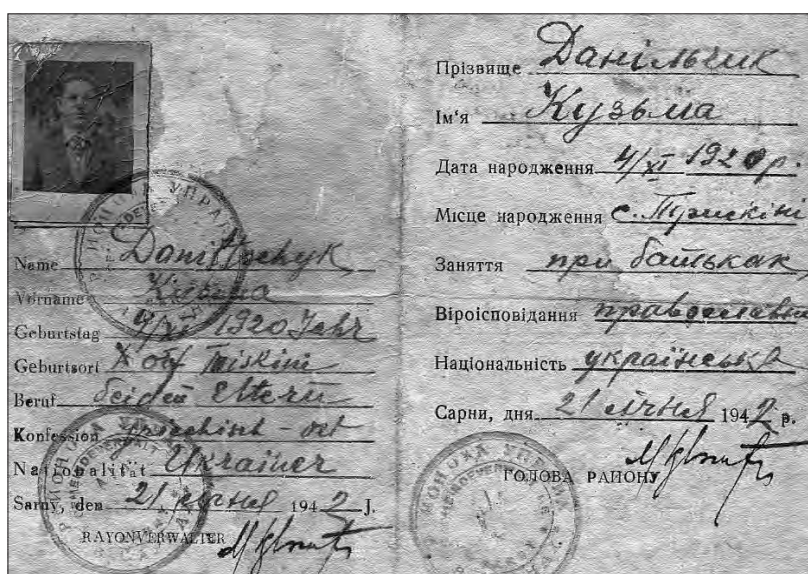 Name Daniltschyk
Vorname Kusma
Geburtstag 4/XI 1920 Jahr
Geburtsort
Beruf bei den Eltern
Konfession griechisch - ort
Nationalität Ukrainer
Sarny, den 21 січня 1942 J.
RAYONVERWALTER
Прізвище Данільчик
Ім'я Кузьма
Дата народження 4/XI 1920 р.
Місце народження с.
Заняття при батьках
Віроісповідання православна
Національність українська
Сарни, дня 21 січня 1942 р.
ГОЛОВА РАЙОНУ